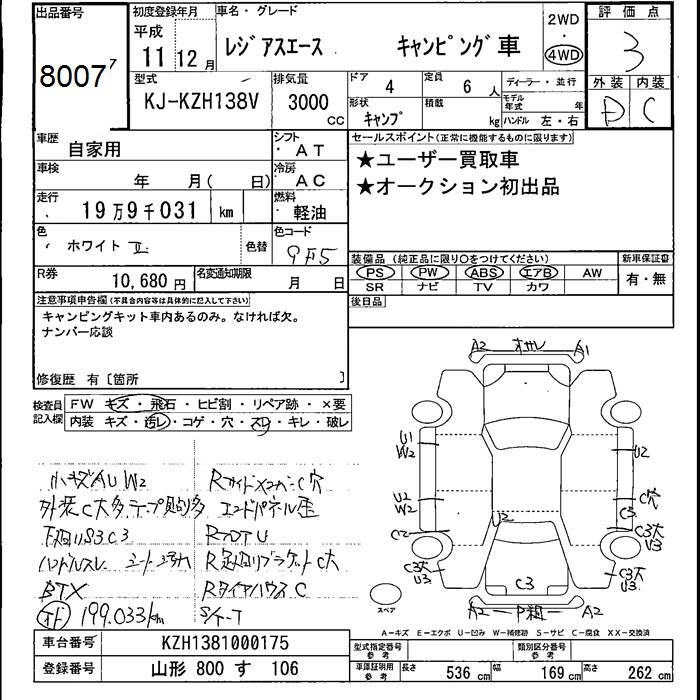 出品番号
8007 7
初度登録年月
平成
11 12月
車名・グレード
レジアスエース キャンピング車
2WD
・
4WD
評価点
3
外装 内装
D C
型式
KJ-KZH138V
排気量
3000
CC
ドア 4
定員 6人
ディーラー・並行
形状 キャンプ
積載 kg
モデル年式 年
ハンドル 左・右
車歴
自家用
シフト
AT
セールスポイント(正常に機能するものに限ります)
★ユーザー買取車
★オークション初出品
車検
年 月( 日)
冷房
AC
走行
19万9千031 km
燃料
軽油
色
ホワイトⅡ
色替
色コード
9F5
装備品(純正品に限り○をつけてください)
新車保証書
PS PW ABS エアB AW
SR ナビ TV カワ
有・無
R券
10,680円
名変通知期限
月 日
後日品
注意事項申告欄(不具合内容は具体的に記入して下さい)
キャンピングキット車内あるのみ。なければ欠。
ナンバー応談
修復歴 有〔箇所 〕
検査員
記入欄
FW キズ・飛石・ヒビ割・リペア跡・×要
内装 キズ・汚レ・コゲ・穴・スレ・キレ・破レ
A2 オサレ A1
U1
W2
U2
U2
W2
C穴
C3
C2
U2
C3大
U3
C3大
U3
C3
C3大
U3
A2 P粗 A2
スペア
小キズAUW2
外装C大多テープ貼多
下廻りS3C3
ハンドルスレ シート汚れ
BTX
199.033km
Rサイドメンバー C穴
エンドパネル歪
RフロアU
R足廻りブラケットC大
RタイヤハウスC
S/K-T
A-キズ E-エクボ U-凹み W-補修跡 S-サビ C-腐食 XX-交換済
車台番号
KZH1381000175
登録番号
山形 800 す 106
型式指定番号
参考
類別区分番号
参考
車庫証明用
参考
長さ 536 cm
幅 169 cm
高さ 262 cm